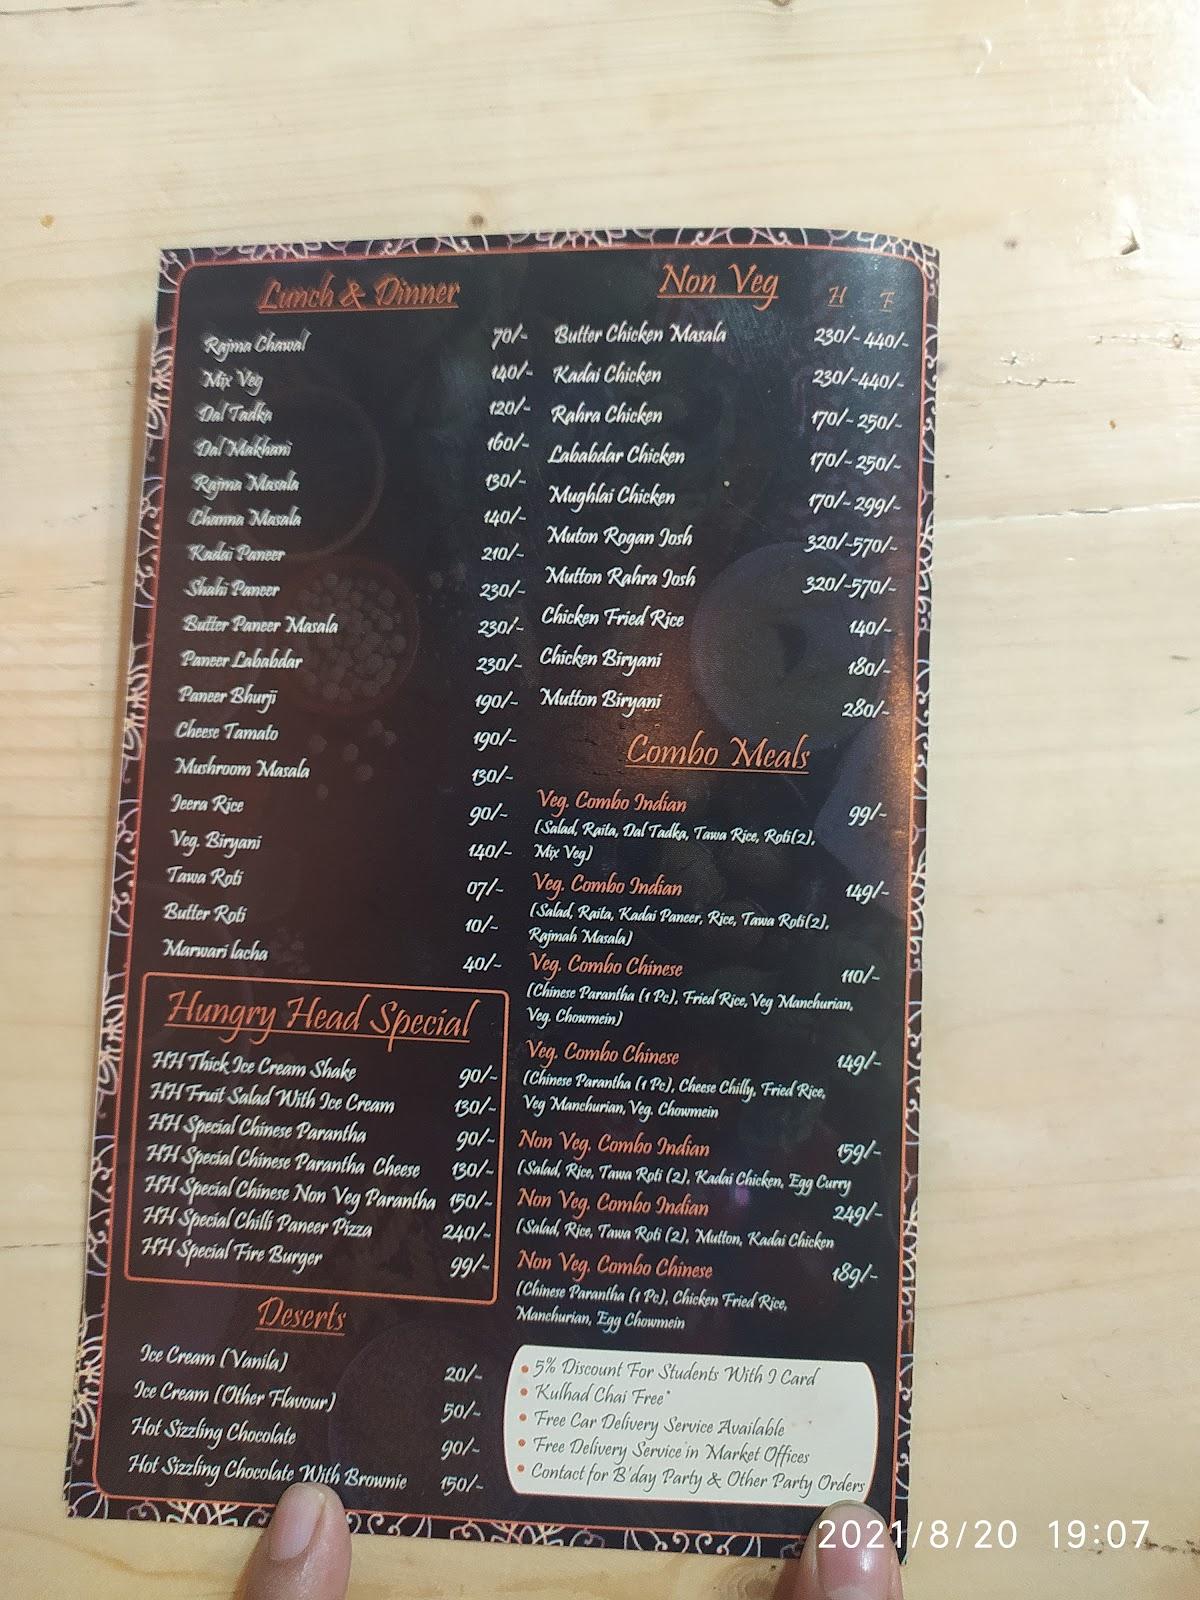 Lunch & Dinner
Rajma Chawal 70/-
Mix Veg 140/-
Dal Tadka 120/-
Dal Makhani 160/-
Rajma Masala 130/-
Channa Masala 140/-
Kadai Paneer 210/-
Shahi Paneer 230/-
Butter Paneer Masala 230/-
Paneer Lababdar 230/-
Paneer Bhurji 190/-
Cheese Tamato 190/-
Mushroom Masala 130/-
Jeera Rice 90/-
Veg. Biryani 140/-
Tawa Roti 07/-
Butter Roti 10/-
Marwari lacha 40/-
Hungry Head Special
HH Thick Ice Cream Shake 90/-
HH Fruit Salad With Ice Cream 130/-
HH Special Chinese Parantha 90/-
HH Special Chinese Parantha Cheese 130/-
HH Special Chinese Non Veg Parantha 150/-
HH Special Chilli Paneer Pizza 240/-
HH Special Fire Burger 99/-
Deserts
Ice Cream (Vanila) 20/-
Ice Cream (Other Flavour) 50/-
Hot Sizzling Chocolate 90/-
Hot Sizzling Chocolate With Brownie 150/-
Non Veg H F
Butter Chicken Masala 230/- 440/-
Kadai Chicken 230/- 440/-
Rahra Chicken 170/- 250/-
Lababdar Chicken 170/- 250/-
Mughlai Chicken 170/- 299/-
Muton Rogan Josh 320/- 570/-
Mutton Rahra Josh 320/- 570/-
Chicken Fried Rice 140/-
Chicken Biryani 180/-
Mutton Biryani 280/-
Combo Meals
Veg. Combo Indian 99/-
(Salad, Raita, Dal Tadka, Tawa Rice, Roti(2),
Mix Veg)
Veg. Combo Indian 149/-
(Salad, Raita, Kadai Paneer, Rice, Tawa Roti(2),
Rajmah Masala)
Veg. Combo Chinese 110/-
(Chinese Parantha (1 Pc), Fried Rice, Veg Manchurian,
Veg. Chowmein)
Veg. Combo Chinese 149/-
(Chinese Parantha (1 Pc), Cheese Chilly, Fried Rice,
Veg Manchurian, Veg. Chowmein
Non Veg. Combo Indian 159/-
(Salad, Rice, Tawa Roti (2), Kadai Chicken, Egg Curry
Non Veg. Combo Indian 249/-
(Salad, Rice, Tawa Roti (2), Mutton, Kadai Chicken
Non Veg. Combo Chinese 189/-
(Chinese Parantha (1 Pc), Chicken Fried Rice,
Manchurian, Egg Chowmein
• 5% Discount For Students With I Card
• Kulhad Chai Free*
• Free Car Delivery Service Available
• Free Delivery Service in Market Offices
• Contact for B'day Party & Other Party Orders
2021/8/20 19:07